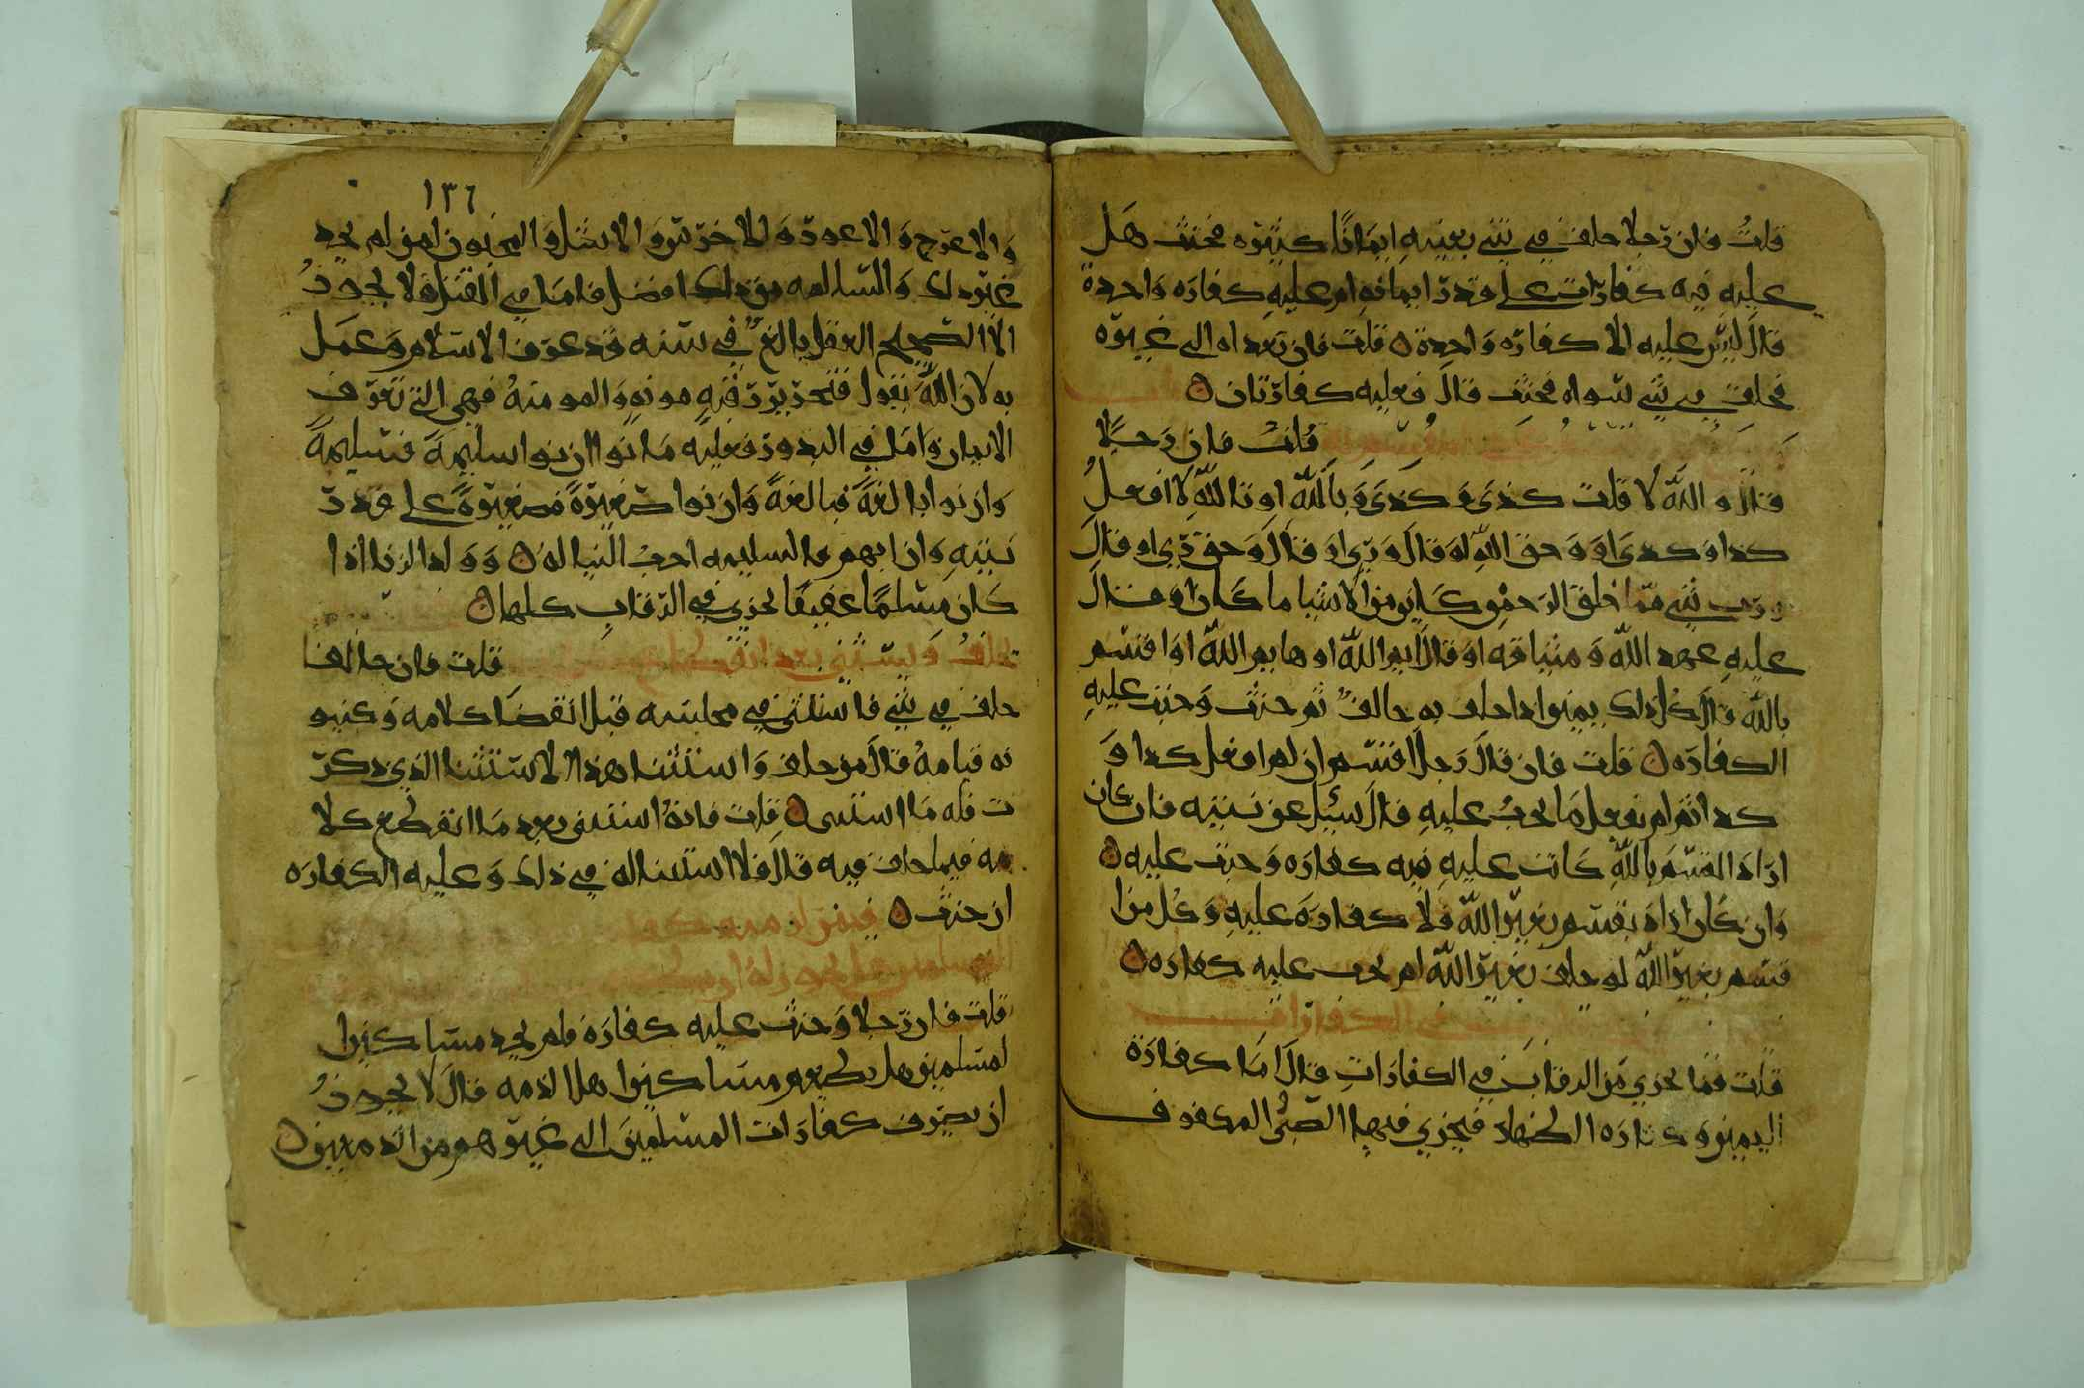 قلت فان رجلا حلف في شي بعينه ايمانا كثيره فحنث هل
عليه فيه كفارات على قدر ايمانه ام عليه كفاره واحدة
قال ليس عليه الا كفاره واحدة قلت فان تعداه الى غيره
فحلف في شي سواه فحنث قال فعليه كفارتان
قلت فان رجلا
قال والله لا قلت كذى وكذى وبالله او تالله لا افعل
كدا وكدى او وحق الله او قال وربي او قال وحق ربي او قال
ورب شي مما خلق الرحمن كاين من الاشيا ما كان او قال
عليه عهد الله وميثاقه او قال ايم الله او هايم الله او اقسم
بالله قال كل ذلك يمين اذا حلف به حالف ثم حنث وجبت عليه
الكفاره قلت فان قال رجل اقسم ان لم افعل كدا و
كدا ثم لم يفعل ما يجب عليه قال سيل عن نيته فان كان
اراد القسم بالله كانت عليه فيه كفاره وجبت عليه
وان كان اراد بقسم بغير الله فلا كفارة عليه وكل من ا
قسم بغير الله لو حلف بغير الله لم يجب عليه كفاره
في الكفارات
قلت فما يجزي من الرقاب في الكفارات قال اما كفارة
اليمين وكفاره الظهار فيجزي فيها الصبي المكفوف
١٣٦
والاعرج والاعور والاخرس والاشل والمجنون لمن لم يجد
غير ذلك والسالمه من ذلك افضل فاما في القتل فلا يجوز
الا الصحيح العقل بالغ في سنه قد عرف الاسلام وعمل
به لان الله يقول فتحرير رقبه مومنه والمومنة فهي التي تعرف
الايمان واما في النذور فعليه ما نوا ان نوا سليمة فسليمة
وان نوا بالغة فبالغة وان نوا صغيرة فصغيرة على قدر
نيته وان ابهم فالسليمه احب الينا له وولد الزنا اذا
كان مسلما عفيفا يجزي في الرقاب كلها
يحلف ويستثني بعد انقطاع قلت فان حالفا
حلف في شي فاستثنى في مجلسه قبل انقضا كلامه وكينو
نه قيامه قال من حلف واستثنا هذا الاستثنا الذي ذكر
ت فله ما استثنى قلت فانه استثنى بعد ما انقطع كلا
مه فيما حلف فيه قال فلا استثنا له في ذلك وعليه الكفاره
ان حنث فيمن لزمته كفا
المسلمين هل يجوز له ان
قلت فان رجلا وجبت عليه كفارة فلم يجد مساكين ا
لمسلمين هل يطعم مساكين اهل الذمه قال لا يجوز
ان يصرف كفارات المسلمين الى غيرهم من الذميين